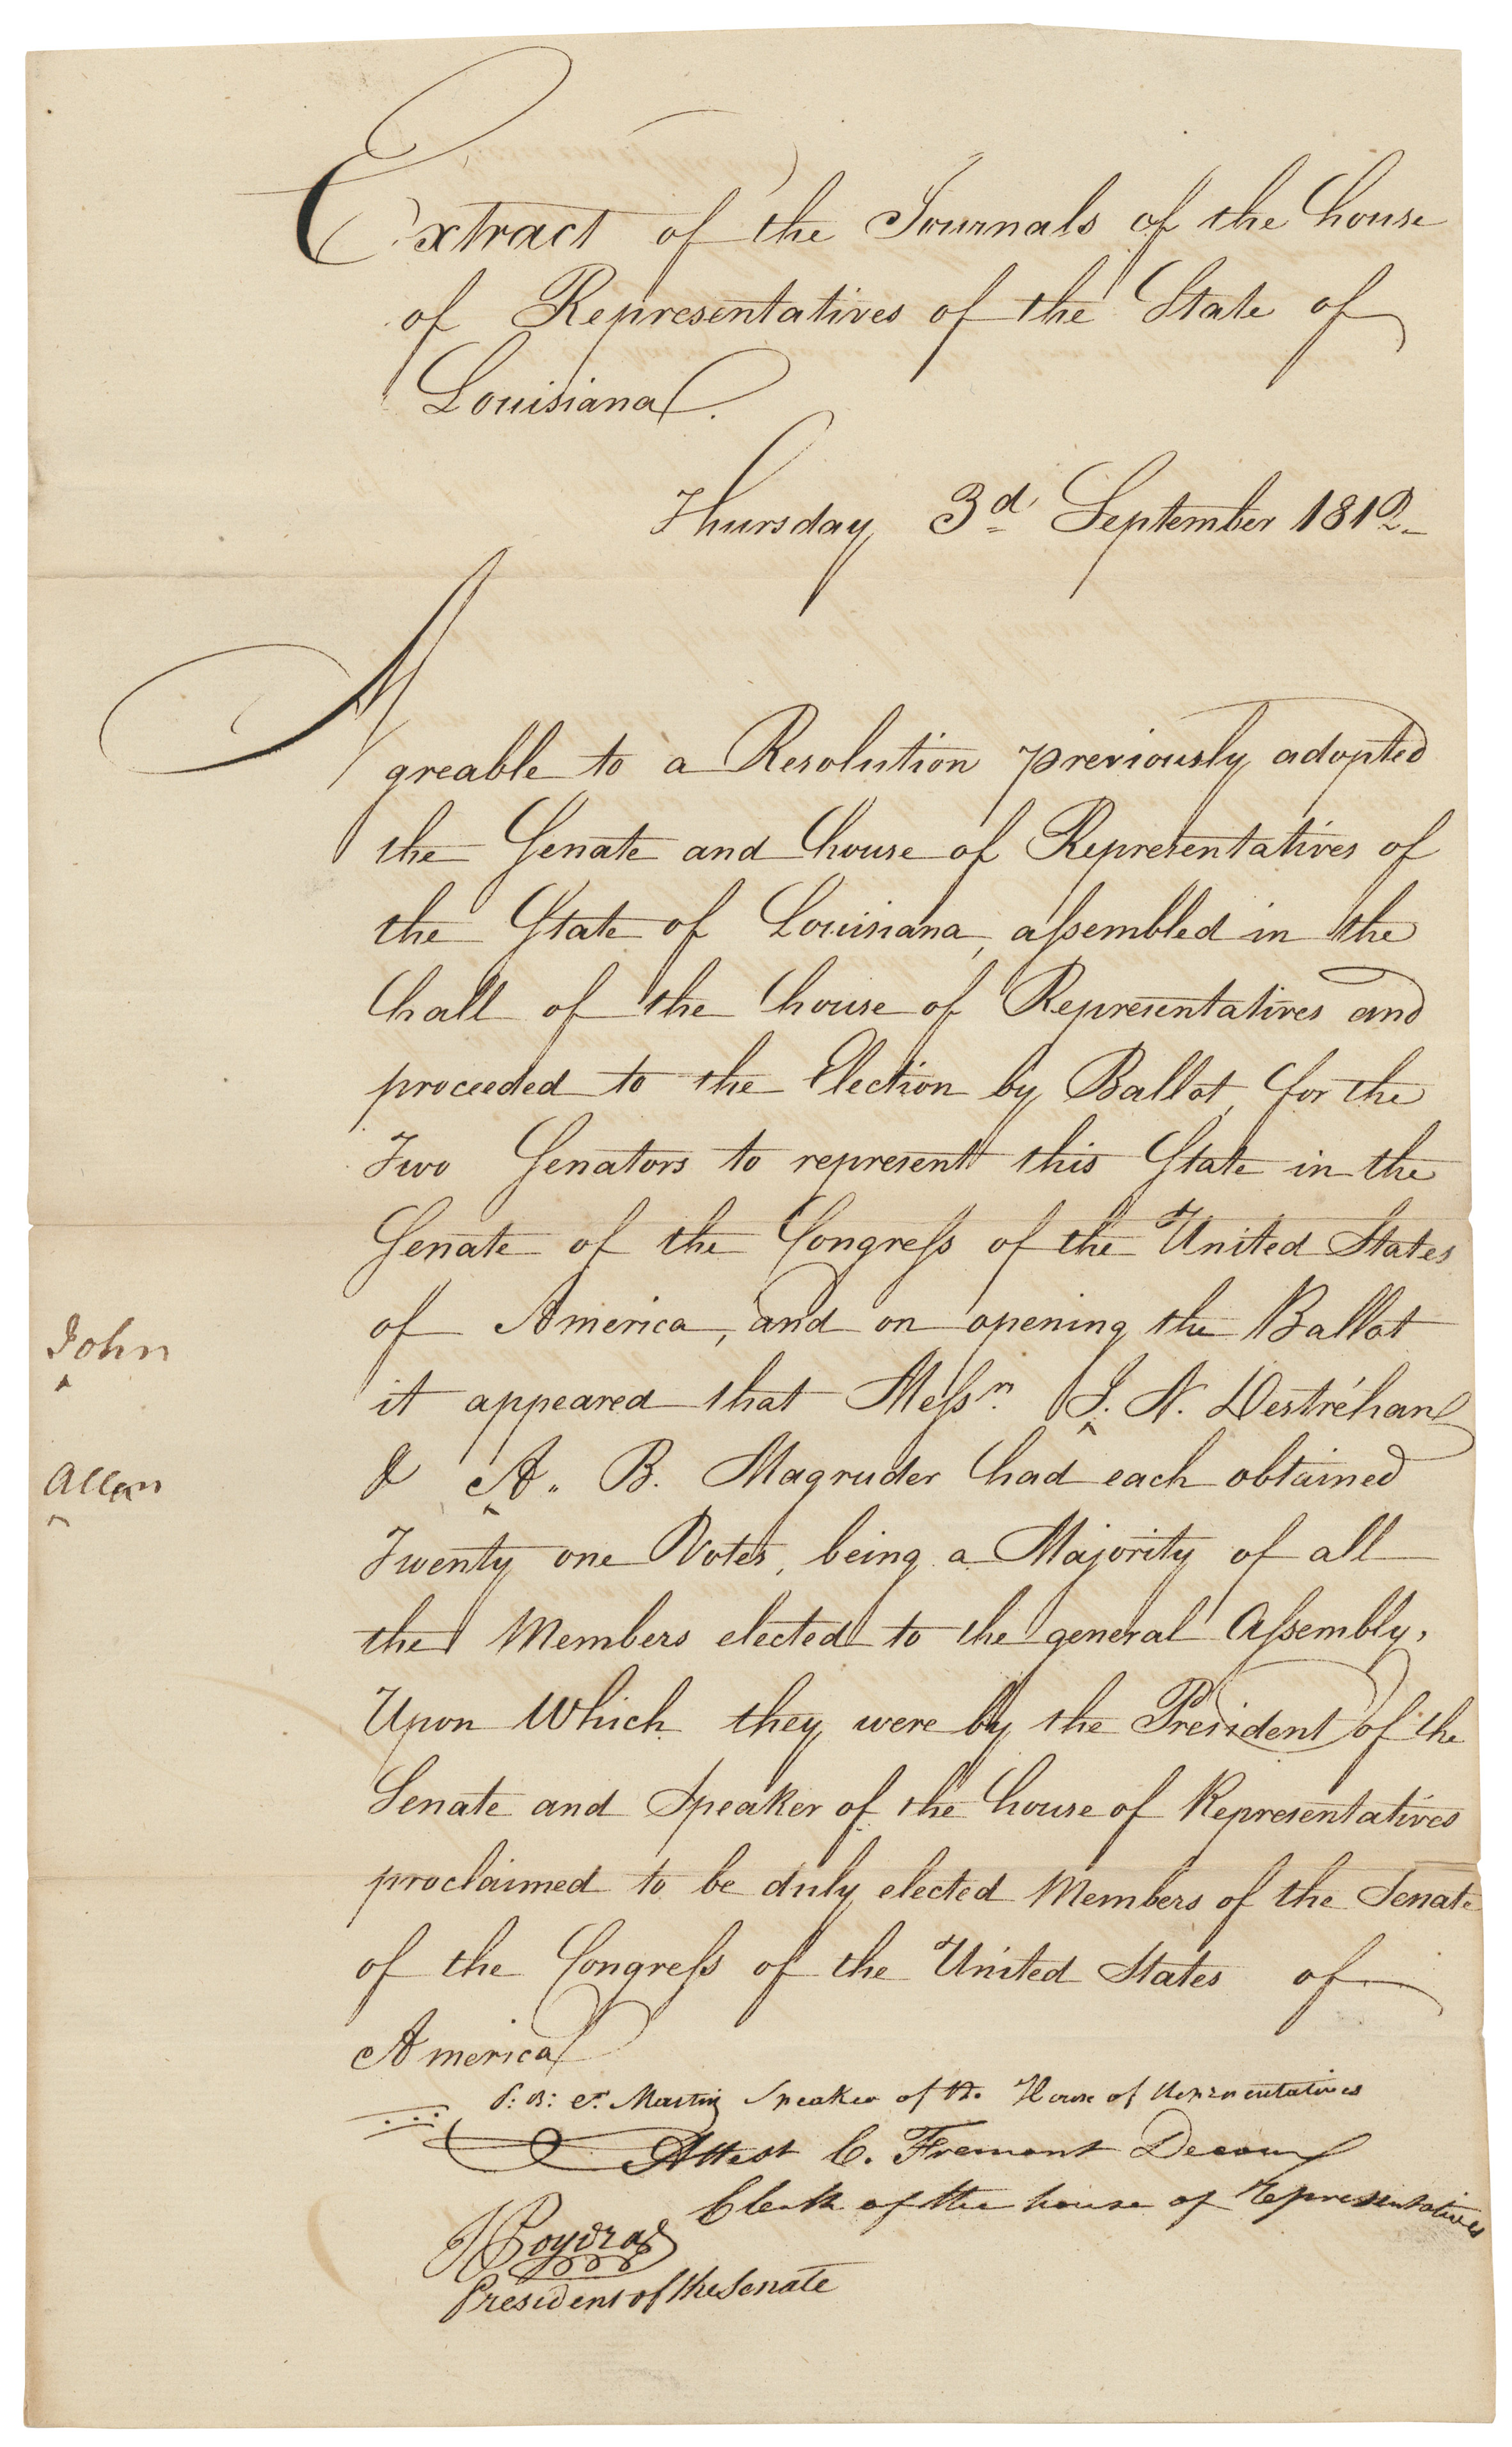 Extract of the Journals of the house
of Representatives of the State of
Louisiana.
Thursday 3d September 1812
Agreable to a Resolution previously adopted
the Senate and house of Representatives of
the State of Louisiana, assembled in the
hall of the house of Representatives and
proceeded to the Election by Ballot, for the
Two Senators to represent this State in the
Senate of the Congress of the United States
of America, and on opening the Ballot
John
^
it appeared that Messrs. J. N. Destréhan
^
Allan
^
& A. B. Magruder had each obtained
^
Twenty one Votes, being a Majority of all
the Members elected to the general Assembly,
Upon Which they were by the President of the
Senate and Speaker of the house of Representatives
proclaimed to be duly elected Members of the Senate
of the Congress of the United States of
America
P: B: St. Martin Speaker of the House of Representatives
Attest C. Fremont Decour
Clerk of the house of Representatives
J Poydras
President of the Senate